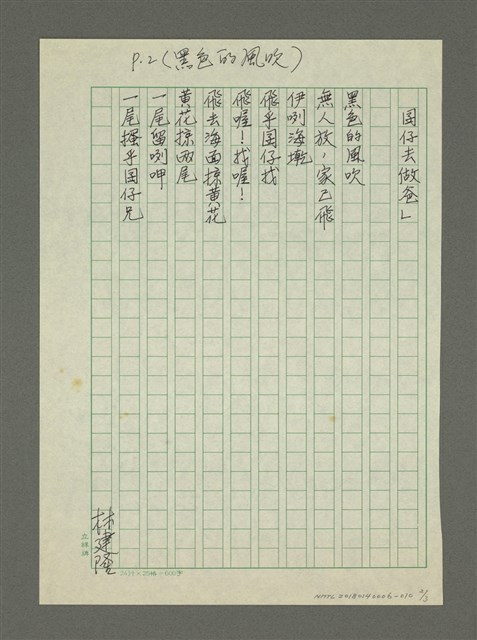 P.2(黑色的風吹)
囝仔去做爸」
黑色的風吹
無人放,家己飛
伊咧海墘
飛乎囝仔找
飛喔!找喔!
飛去海面掠黃花
黃花掠兩尾
一尾留咧呷
一尾擱乎囝仔兄
林建隆
24行×25格=600字
NMTL20180140006-014 2/3